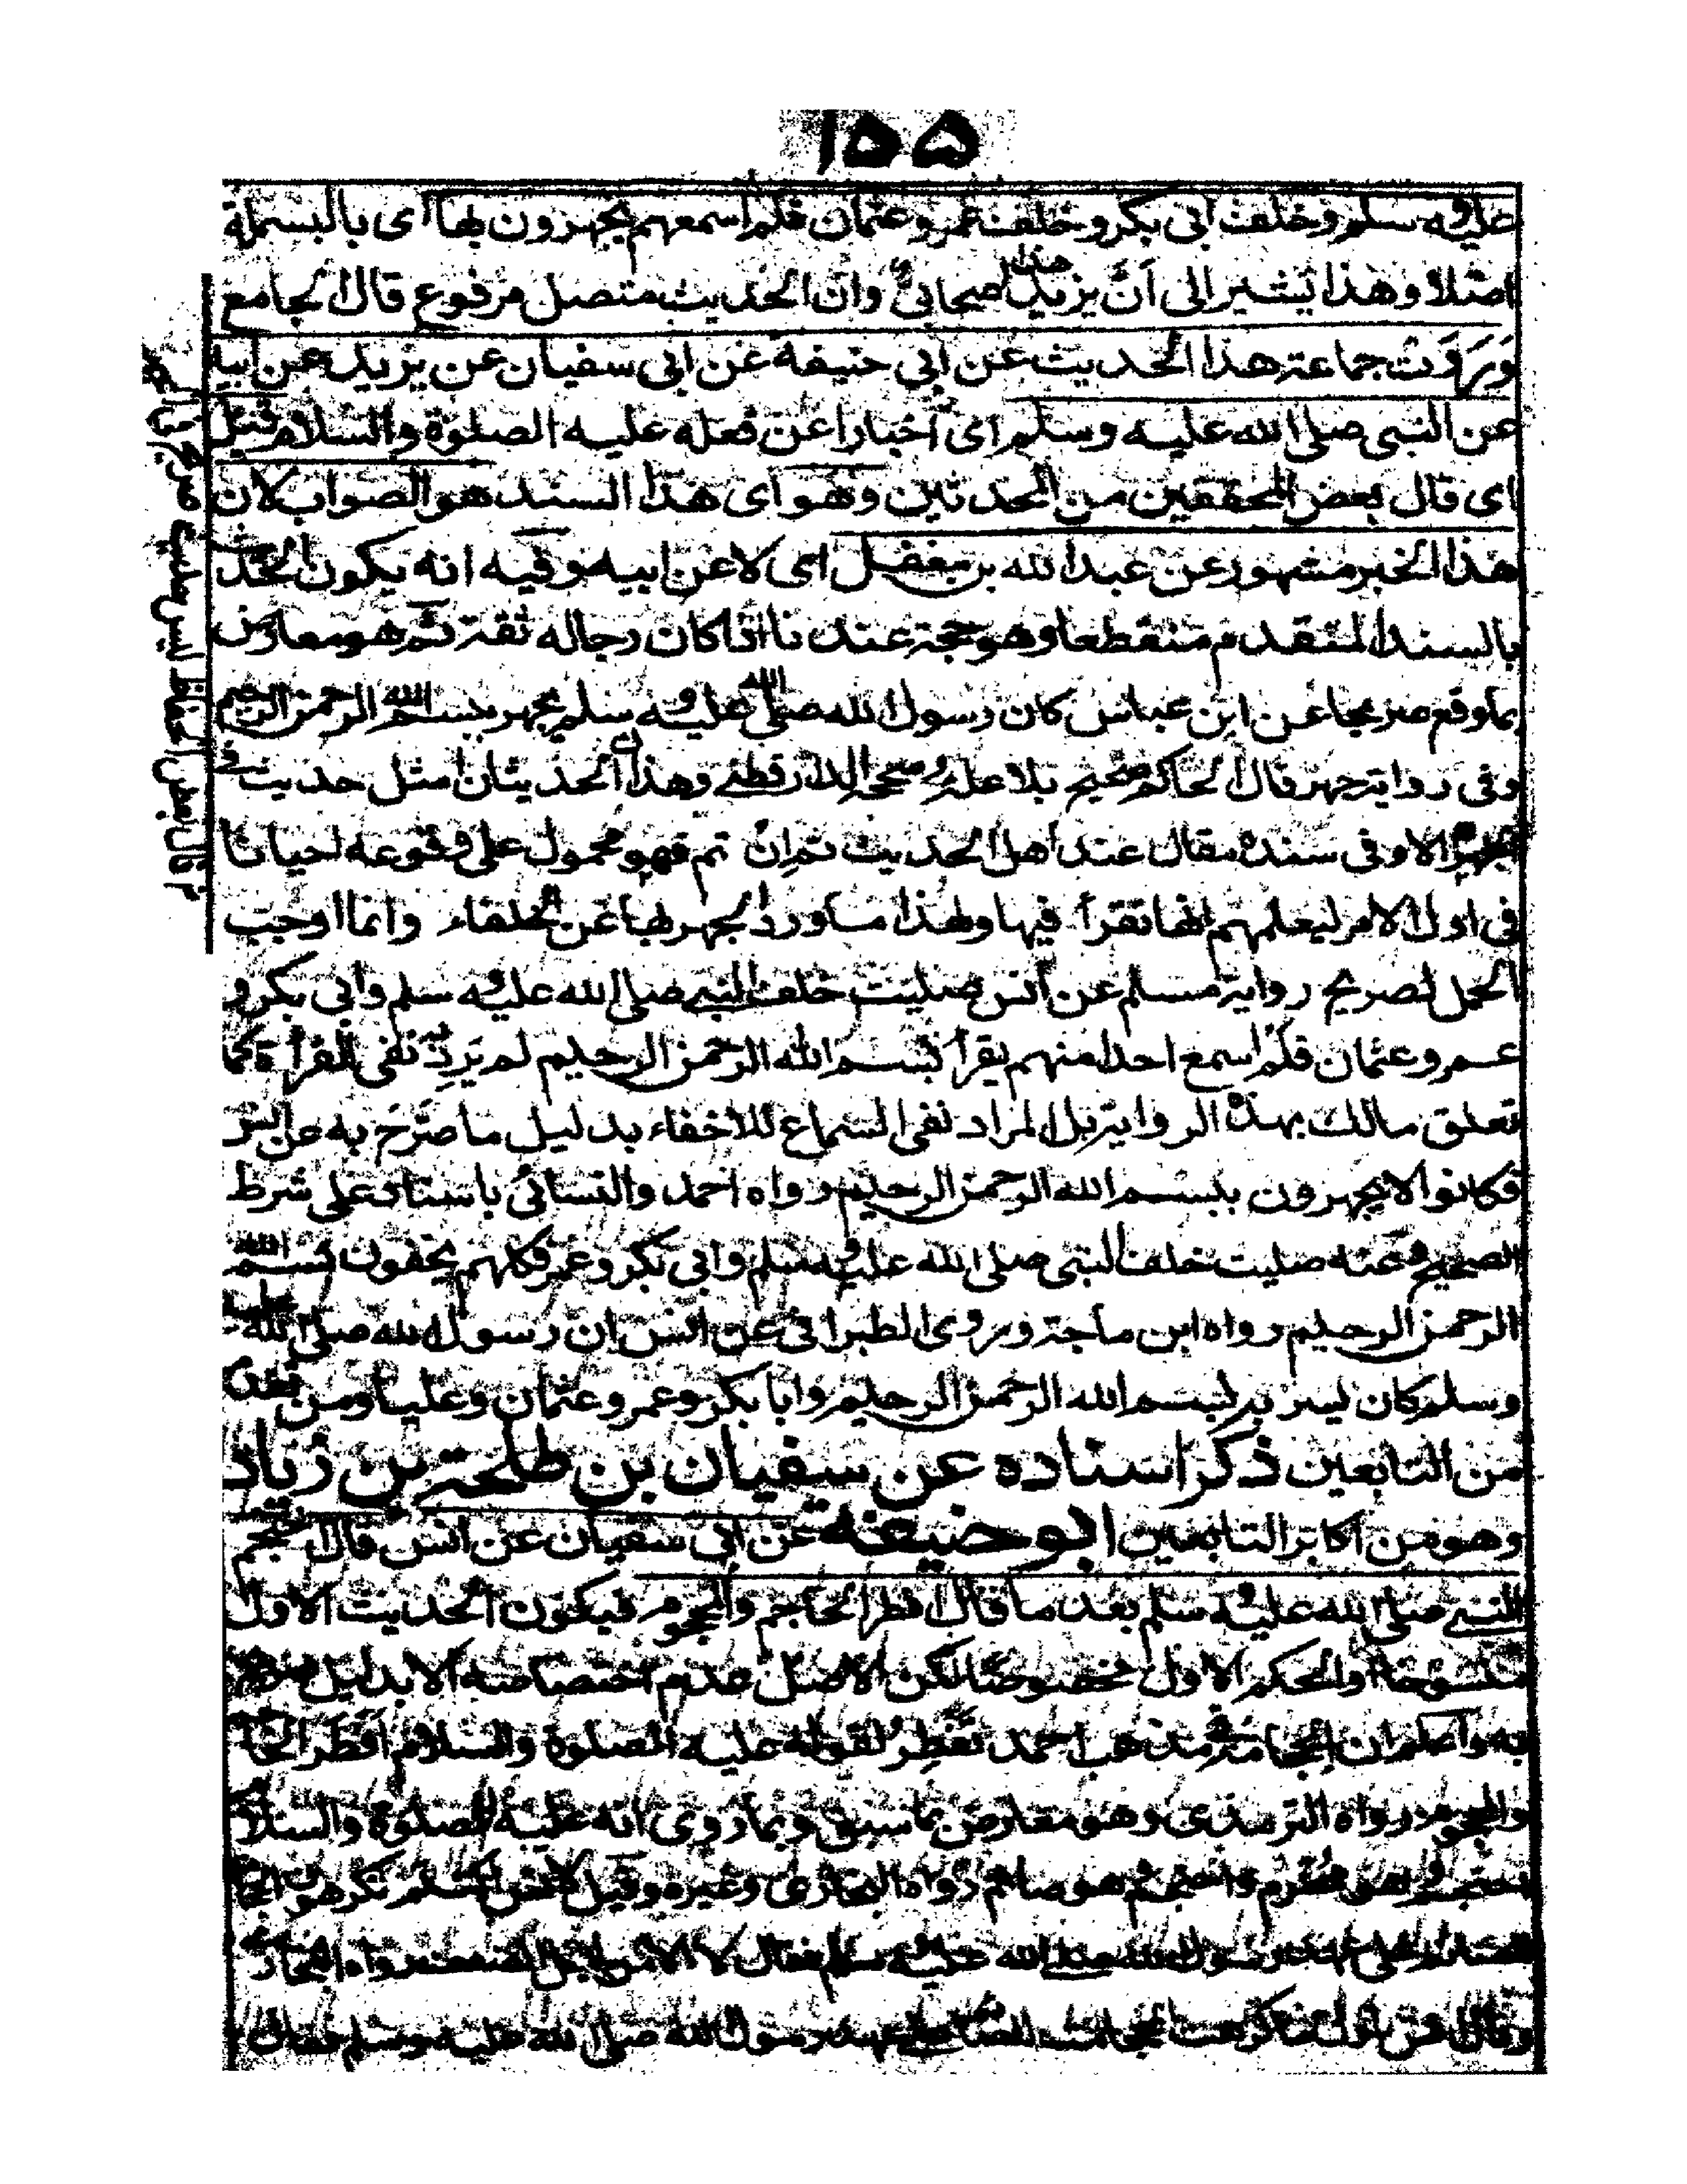 ١٥٥
عليه وسلم وخلف ابى بكر وخلف عمر وعثمان فلم اسمعهم يجهرون بها اى بالبسملة
اصلا وهذا يشير الى اَنَّ يزيد هذا صحابىٌّ وان الحديث متصل مرفوع قال الجامع
وَرَوَتْ جماعة هذا الحديث عن ابى حنيفة عن ابى سفيان عن يزيد عن ابيه
عن النبى صلى الله عليه وسلم اى اخبارا عن فعله عليه الصلوة والسلام قيل
اى قال بعض المحققين من المحدثين وهو اى هذا السند هو الصواب لان
هذا الخبر مشهور عن عبد الله بن مغفل اى لا عن ابيه وفيه انه يكون الحديث
بالسند المتقدم منقطعا وهو حجة عندنا اذا كان رجاله ثقة ثم هو معارض
بما وقع صريحا عن ابن عباس كان رسول الله صلى الله عليه وسلم يجهر ببسم الله الرحمن الرحيم
وفى رواية جهر قال الحاكم صحيح بلا علة وصححه الدارقطنى وهذا اى الحديثان امثل حديث فى
الجهر الا وفى سنده مقال عند اهل الحديث ثم اِنْ تم فهو محمول على وقوعه احيانا
فى اول الامر ليعلمهم انها تقرأ فيها ولهذا ما ورد الجهر بها عن الخلفاء وانما اوجب
الحمل لصريح رواية مسلم عن انس صليت خلف النبى صلى الله عليه وسلم وابى بكر و
عمر وعثمان فلم اسمع احدا منهم يقرأ بسم الله الرحمن الرحيم لم يَرِدْ به نفى القرأة كما
تعلق مالك بهذه الرواية بل المراد نفى السماع للاخفاء بدليل ما صَرَّحَ به عن انس
فكانوا لا يجهرون ببسم الله الرحمن الرحيم رواه احمد والنسائى باسناد على شرط
الصحيح وعنه صليت خلف النبى صلى الله عليه وسلم وابى بكر وعمر فكلهم يخفون بسم الله
الرحمن الرحيم رواه ابن ماجة وروى الطبرانى عن انس ان رسول الله صلى الله عليه
وسلم كان يسر ببسم الله الرحمن الرحيم وابا بكر وعمر وعثمان وعليا ومن بعده
من التابعين ذكر اسناده عن سفيان بن طلحة بن زياد
وهو من اكابر التابعين ابو حنيفة عن ابى سفيان عن انس قال احتجم
النبى صلى الله عليه وسلم بعد ما قال افطر الحاجم والمحجوم فيكون الحديث الاول
منسوخا او الحكم الاول مخصوصا لكن الاصل عدم اختصاصه الا بدليل
به واعلم ان الحجامة فى مذهب احمد تفطر لقوله عليه الصلوة والسلام اَفْطَرَ الحاجم
والمحجوم رواه الترمذى وهو معارض بما سبق وبما روى انه عليه الصلوة والسلام
احتجم وهو محرم واحتجم وهو صائم رواه البخارى وغيره وقيل لانس اكنتم تكرهون الحجامة
على عهد رسول الله صلى الله عليه وسلم فقال لا الا من اجل الضعف رواه البخارى
وقال انس اول ما كرهت الحجامة للصائم رسول الله صلى الله عليه وسلم فقال
قال بعض الحفاظ ليس عليه